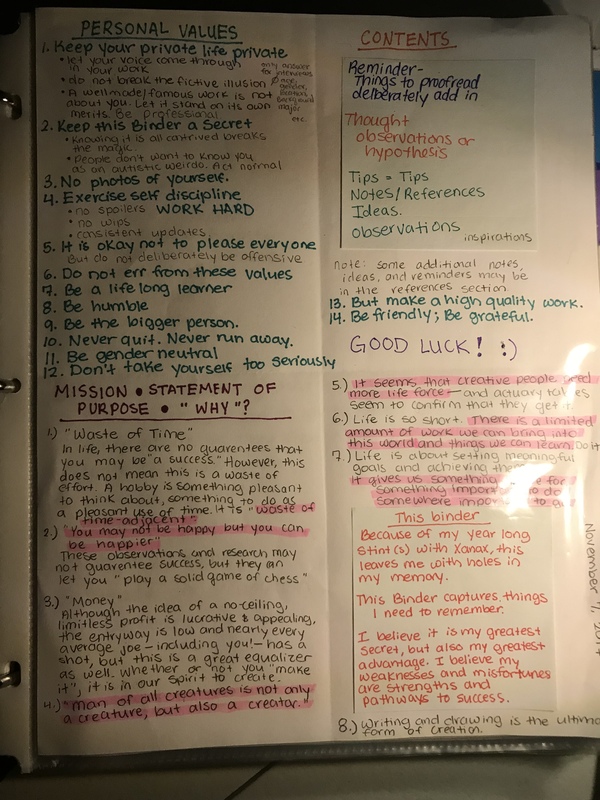 PERSONAL VALUES
1. Keep your private life private
• let your voice come through
in your work
• do not break the fictive illusion
• A wellmade/famous work is not
about you. Let it stand on its own
merits. Be Professional
only answer
for interviews
age,
gender,
background
major
etc.
2. Keep this Binder a Secret
• Knowing it is all contrived breaks
the magic.
• People don't want to know you
as an autistic weirdo. Act normal
3. No photos of yourself.
4. Exercise self discipline
• no spoilers WORK HARD
• no wips
• consistent updates
5. It is okay not to please everyone
But do not deliberately be offensive
6. Do not err from these values
7. Be a life long learner
8. Be humble
9. Be the bigger person.
10. Never quit. Never run away.
11. Be gender neutral
12. Don't take yourself too seriously
MISSION • STATEMENT OF
PURPOSE • "WHY"?
1.) "Waste of Time"
In life, there are no guarentees that
you may be a success." However, this
does not mean this is a waste of
effort. A hobby is something pleasant
to think about, something to do as
a pleasant use of time. It is "waste of
time-adjacent."
2.) "You may not be happy but you can
be happier"
These observations and research may
not guarentee success, but they can
let you "play a solid game of chess"
3.) "Money"
Although the idea of a no-ceiling,
limitless profit is lucrative & appealing,
the entryway is low and nearly every
average joe - including you! - has a
shot, but this is a great equalizer
as well. Whether or not you "make
it", it is in our spirit to create.
4.) "man of all creatures is not only
a creature, but also a creator."
CONTENTS
Reminder-
Things to proofread
deliberately add in
Thought
observations or
hypothesis
Tips = Tips
Notes/References
Ideas.
observations
inspirations
note: some additional notes,
ideas, and reminders may be
in the references section.
13. But make a high quality work.
14. Be friendly; Be grateful.
GOOD LUCK! :)
5.) It seems that creative people need
more life force - and actuary tables
seem to confirm that they get it.
6.) Life is so short. There is a limited
amount of work we can bring into
this world and things we can learn. Do it
7.) Life is about setting meaningful
goals and achieving them
it gives us something for
something important to do
somewhere important to
This binder
Because of my year long
stint(s) with Xanax, this
leaves me with holes in
my memory.
This Binder captures things
I need to remember.
I believe it is my greatest
secret, but also my greatest
advantage. I believe my
weaknesses and misfortunes
are strengths and
pathways to success.
8.) Writing and drawing is the ultima
form of creation.
November